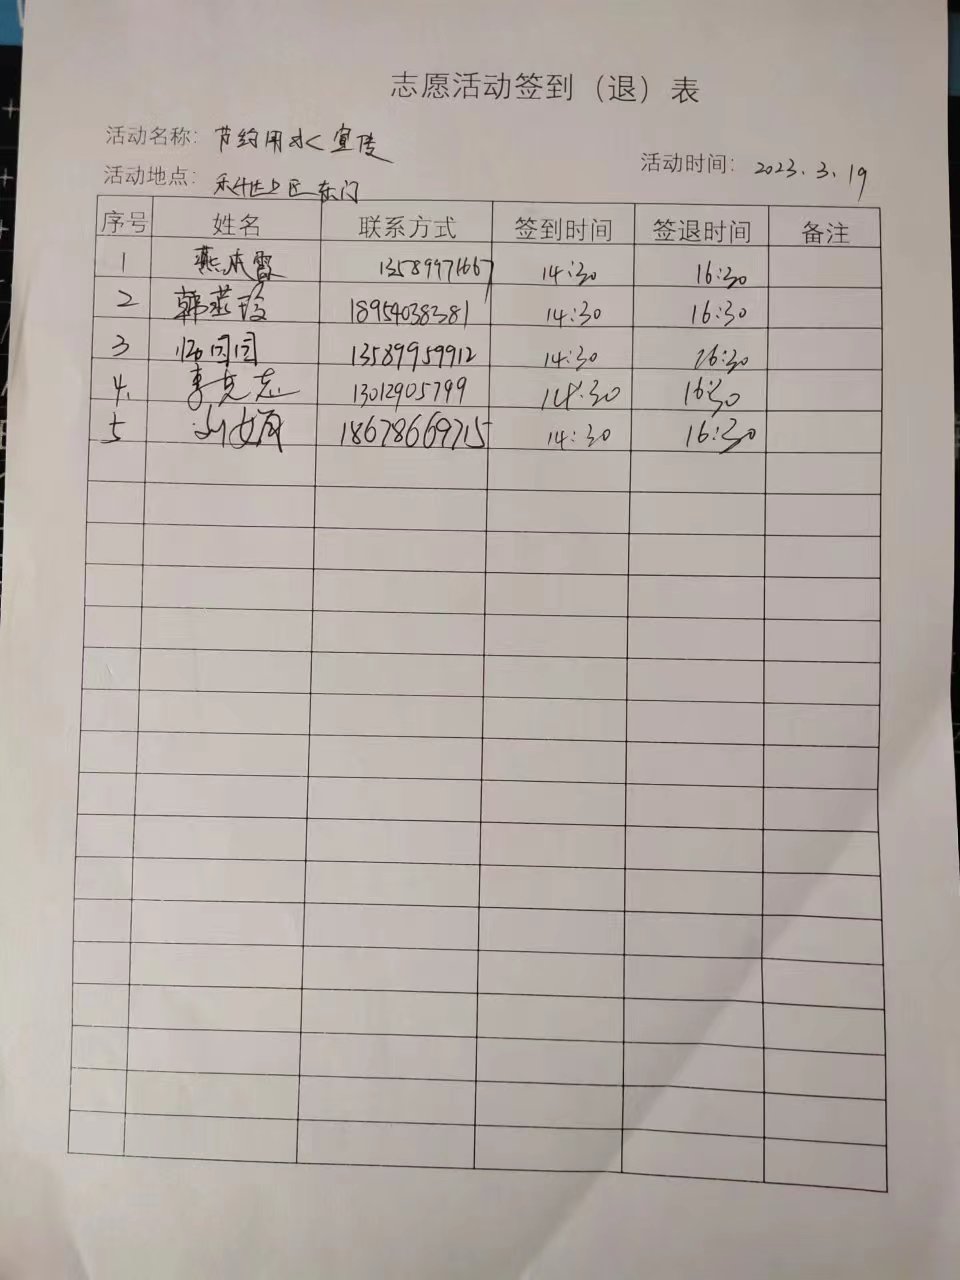 志愿活动签到（退）表
活动名称：节约用水宣传
活动时间：2023.3.19
活动地点：社区东门
序号 姓名 联系方式 签到时间 签退时间 备注
1 燕 霞 13589971667 14:30 16:30
2 韩燕玲 18954038381 14:30 16:30
3 园园 13589959912 14:30 16:30
4. 李克志 13012905799 14:30 16:30
5 18678669715 14:30 16:30